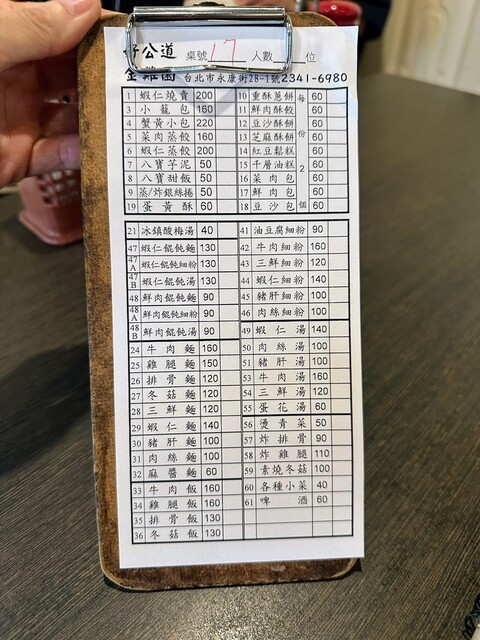 好公道 桌號 17 人數 位
金雞園 台北市永康街28-1號 2341-6980
1 蝦仁燒賣 200
3 小籠包 160
4 蟹黃小包 220
5 菜肉蒸餃 160
6 蝦仁蒸餃 200
7 八寶芋泥 50
8 八寶甜飯 50
9 蒸/炸銀絲捲 50
19 蛋黃酥 60
10 重酥蔥餅 60
11 鮮肉酥餃 60
12 豆沙酥餅 60
13 芝麻酥餅 60
14 紅豆鬆糕 60
15 千層油糕 60
16 菜肉包 60
17 鮮肉包 60
18 豆沙包 60
每份2個
21 冰鎮酸梅湯 40
47 蝦仁餛飩麵 130
47A 蝦仁餛飩細粉 130
47B 蝦仁餛飩湯 130
48 鮮肉餛飩麵 90
48A 鮮肉餛飩細粉 90
48B 鮮肉餛飩湯 90
24 牛肉麵 160
25 雞腿麵 150
26 排骨麵 120
27 冬菇麵 120
28 三鮮麵 120
29 蝦仁麵 140
30 豬肝麵 100
31 肉絲麵 100
32 麻醬麵 60
33 牛肉飯 160
34 雞腿飯 160
35 排骨飯 130
36 冬菇飯 130
41 油豆腐細粉 90
42 牛肉細粉 160
43 三鮮細粉 120
44 蝦仁細粉 140
45 豬肝細粉 100
46 肉絲細粉 100
49 蝦仁湯 140
50 肉絲湯 100
51 豬肝湯 100
53 牛肉湯 160
54 三鮮湯 120
55 蛋花湯 60
56 燙青菜 50
57 炸排骨 90
58 炸雞腿 110
59 素燒冬菇 100
60 各種小菜 40
61 啤酒 60